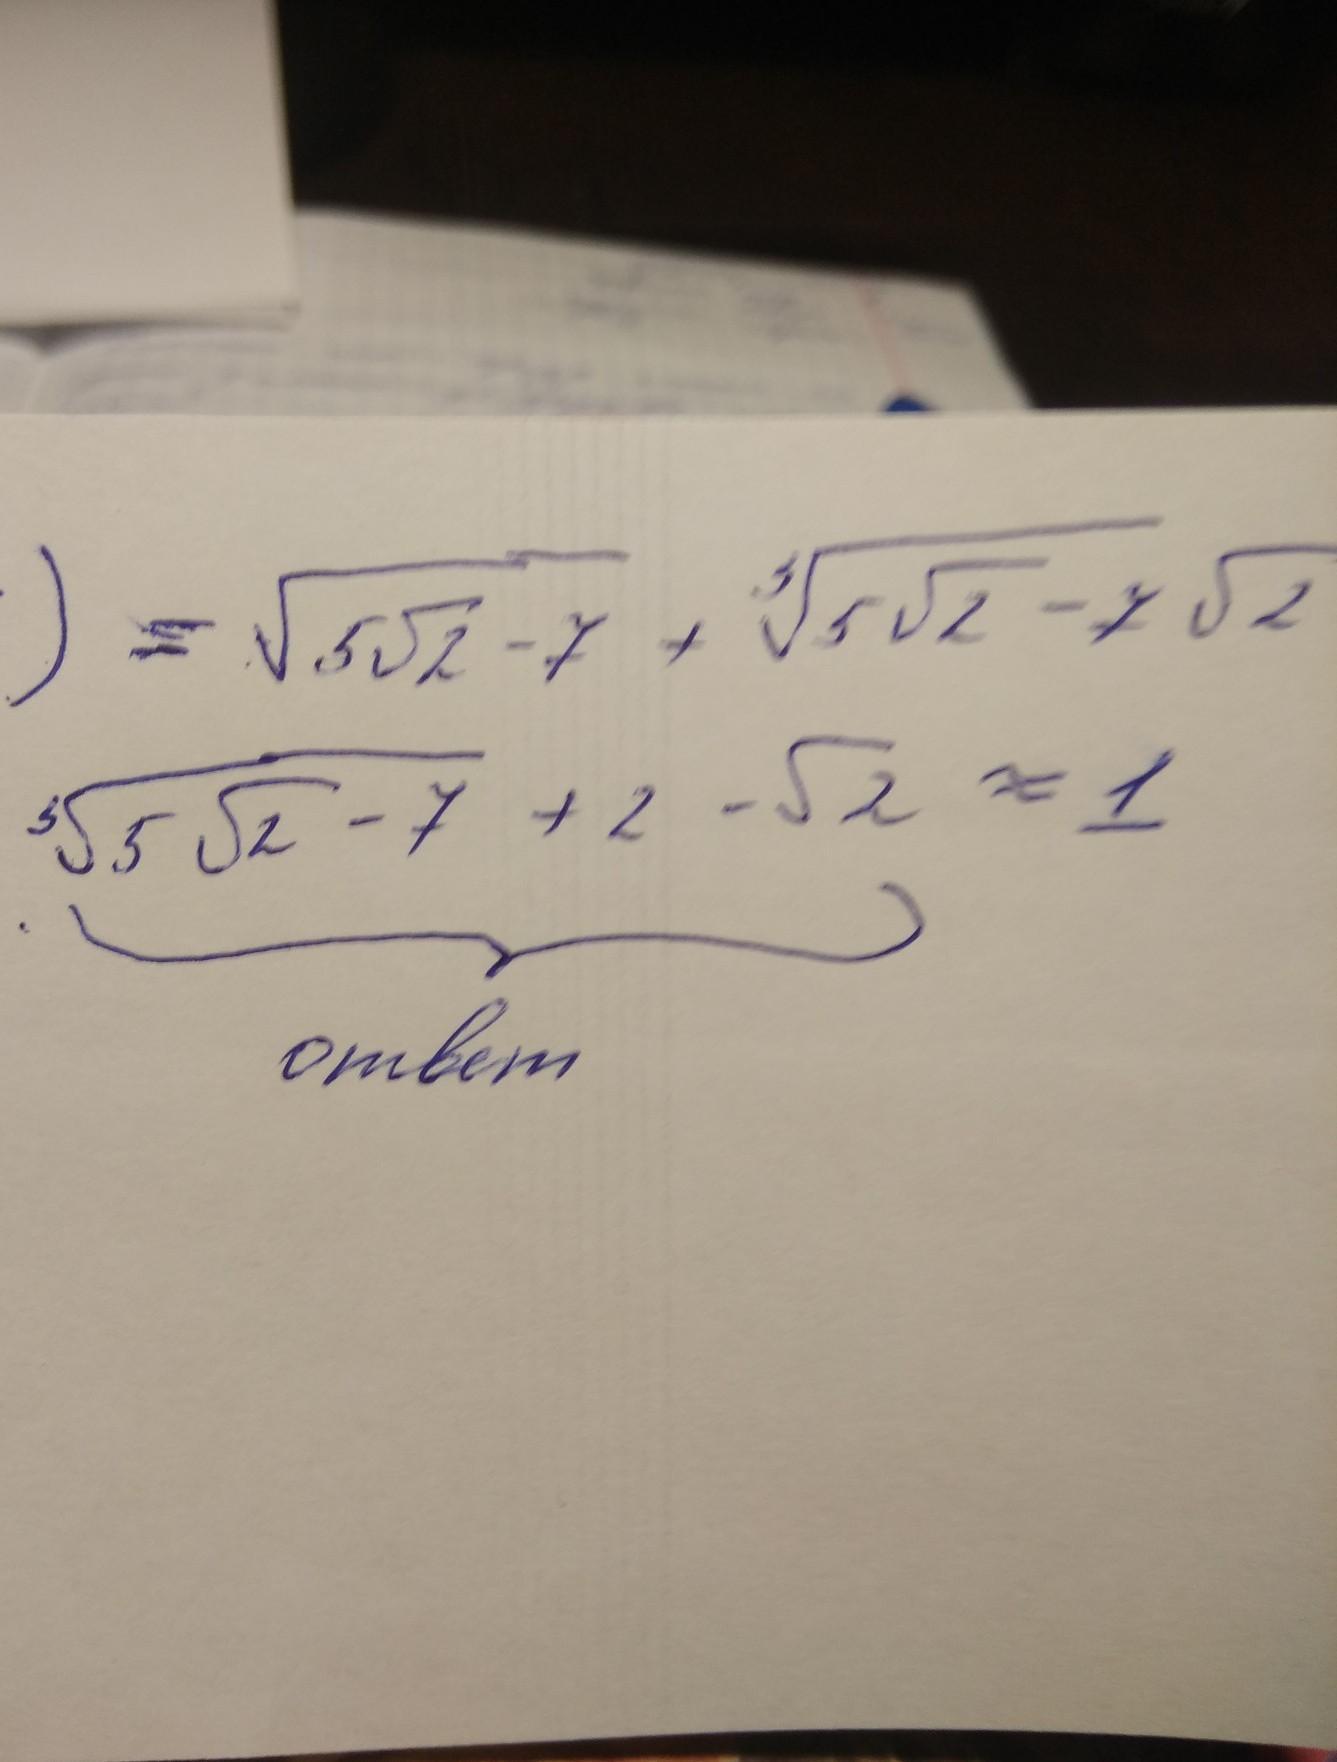 ) = √(5√2 - 7) + ³√(5√2 - 7) √2
³√(5√2 - 7) + 2 - √2 ≈ 1
ответ